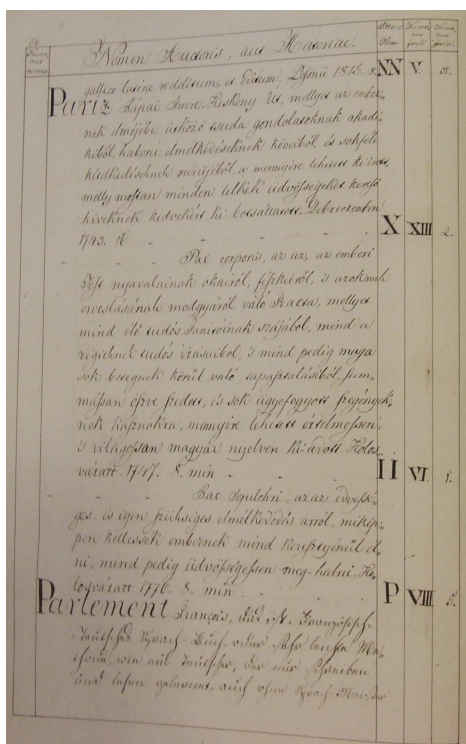 Nomen Auctoris, aus Materiae.
gallice latine redditum, et Editum. Posonii 1815. 8.
XX V.
Pariz Pápai Imre. Keskeny Út, mellyet az ember
nek elméjébe ütköző tsuda gondolatoknak akadé
kiból, háború elmélkedéseknek köveiből, és sokféle
kérdéseknek
a mennyire lehetett ki irtt,
melly mostan minden lelkek üdvösségeket kereső
híveknek kedvekért ki botsáttatott. Debreczenben
1743. 16
X XIII 2.
Pax corporis, az az, az emberi
Test nyavalyáinak okairól, fészkeiről, is azoknak
orvoslásának módgyáról való Tracta, mellyet
mind élő tudós Tanítóinak szájából, mind a
régieknek tudós irásaiból, s mind pedig maga
sok betegek körül való tapasztalásiból, sum-
mássan öszve szedett, és sok ügyefogyott szegények-
nek hasznokra, mennyire lehetett értelmessen,
s világossan magyar nyelven ki adott. Kolos
váratt. 1747. 8. min
II VI. 1.
Pax sepulchri, az az idvessé-
ges és igen szükséges elmélkedés arról, mikép-
pen kellessék embernek mind keresztyénül él-
ni, mind pedig üdvösségessen meg-halni. Ko-
losváratt 1776. 8. min
P VIII 5.
Parlement François, das ist: Französisch-
Teutsches Sprach-Buch, oder sehr leichte Me-
thode, wie ein Teutscher, der nur schreiben
und lesen gelernet, auch ohne Sprach-Meister